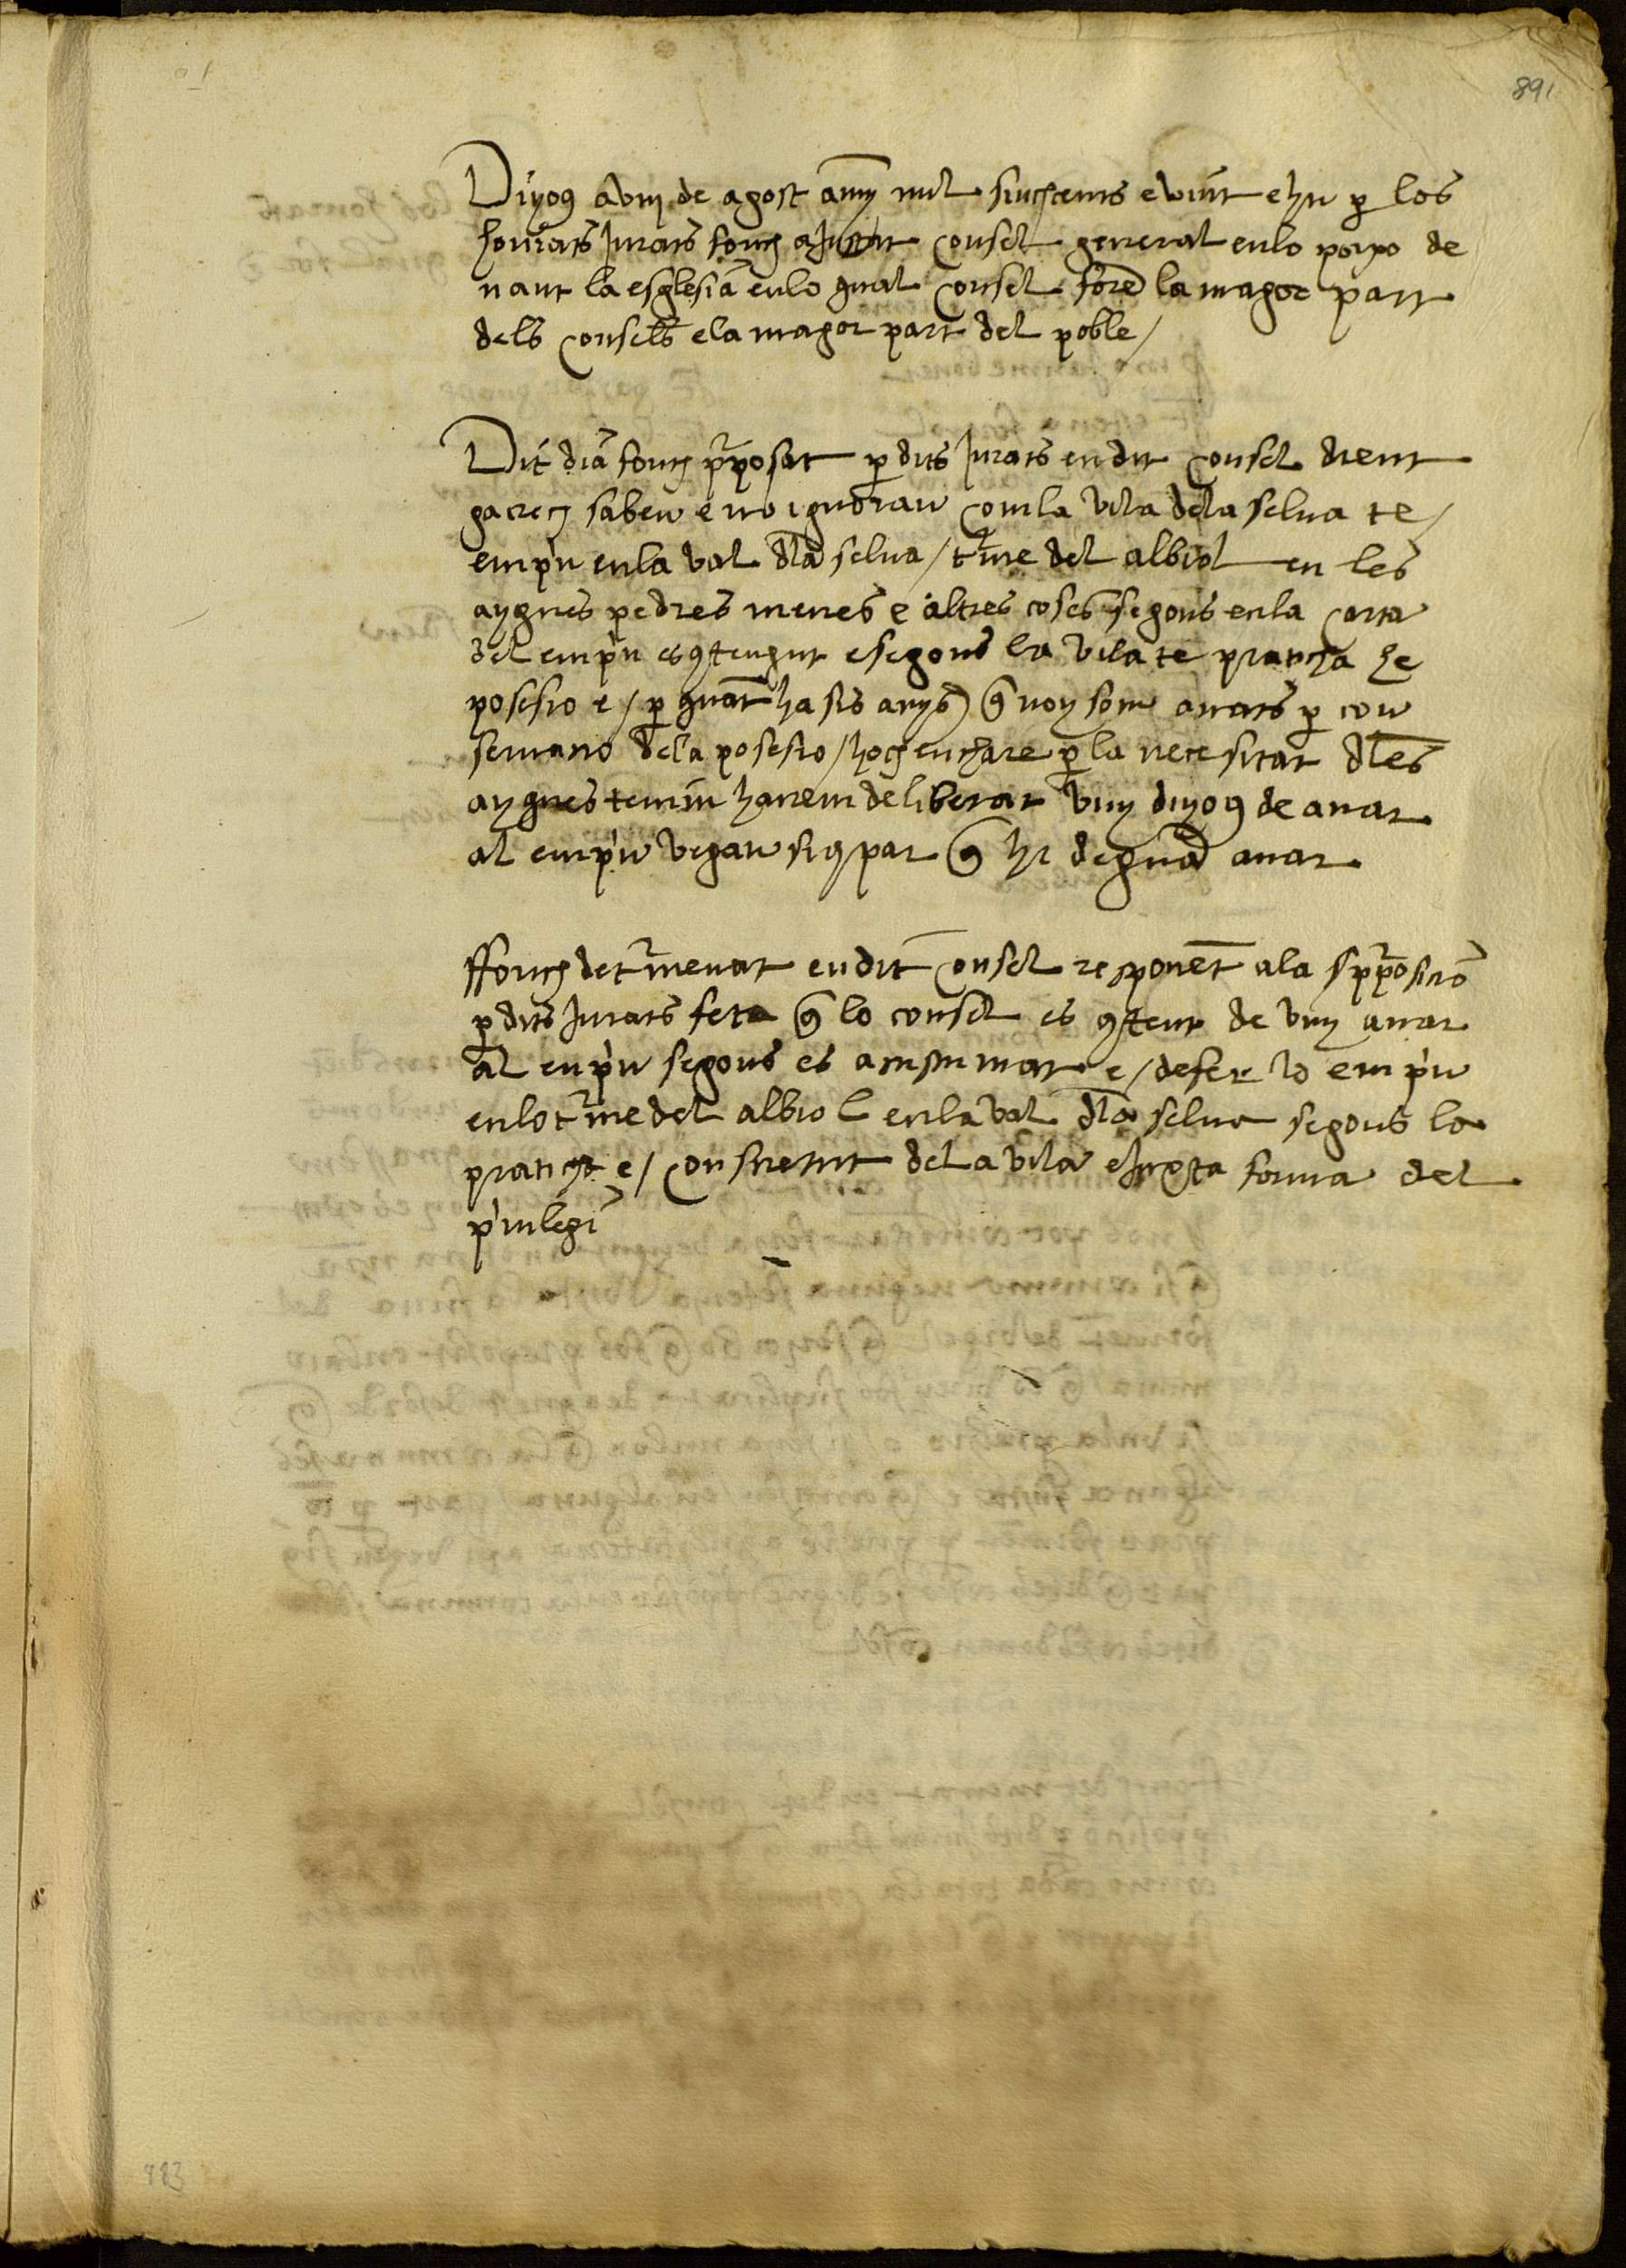 891
Diyog a viij de agost any mil sinchcents e vint e hu per los
honrats Jurats fonch aJustat consel general en lo porxo de
nant la esglesia en lo qual consel foren la magor part
dels consels e la magor part del poble /
Dit dia fonch proposat per dits Jurats en dit consel dient
ga crech saben e no ignoran com la vila dela selva te /
empriu en la val dla selva / terme del albiol en les
aygues pedres menes e altres coses segons en la carta
del empriu es contengut e segons la vila te praticha he
posesio e / per quant ha sis anys que noy som anats per con
servacio dela posesio / hoch enchare per la necesitat dles
aygues tenim havem deliberat vuy diyog de anar
al empriu vegan sius par que hi degam anar
ffonch determenat en dit consel responent ala sproposicio
per dits Jurats feta que lo consel es content de vuy anar
al enpriu segons es acustumat e / defer lo empriu
en lo terme del albiol en la val dla selva segons la
praticha e / consuetut dela vila e Juxta forma del
privilegi
883